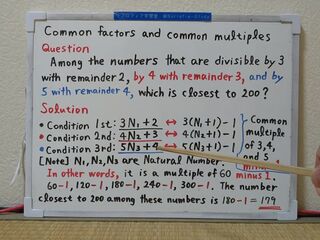 Common factors and common multiples
Question
Among the numbers that are divisible by 3
with remainder 2, by 4 with remainder 3, and by
5 with remainder 4, which is closest to 200?
Solution
• Condition 1st: 3N₁+2 ↔ 3(N₁+1)-1
• Condition 2nd: 4N₂+3 ↔ 4(N₂+1)-1
• Condition 3rd: 5N₃+4 ↔ 5(N₃+1)-1
Common
multiple
of 3,4,
and 5
minus 1
[Note] N₁, N₂, N₃ are Natural Number.
In other words, it is a multiple of 60 minus 1.
60-1, 120-1, 180-1, 240-1, 300-1. The number
closest to 200 among these numbers is 180-1=179